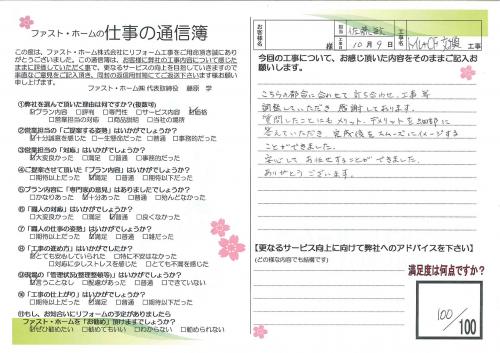 ファスト・ホームの仕事の通信簿
この度は、ファスト・ホーム株式会社にリフォーム工事をご用命頂き誠にあり
がとうございました。この通信簿は、お客様に弊社の工事内容について感じた
ままに評価していただく事で、更なるサービスの向上を目指していきますので
率直なご意見をご記入頂き、同封の返信用封筒にてご返送下さいます様お願い
申し上げます。
ファスト・ホーム㈱ 代表取締役 藤原 学
①弊社を選んで頂いた理由は何ですか?(複数可)
□プラン内容 □評判 □専門性 □サービス内容 □価格
□営業担当の対応 □商品説明 □会社の規模
②営業担当の「ご提案する姿勢」はいかがでしょうか?
□十分誠意を感じた □一生懸命だった □普通 □事務的だった
③営業担当の「対応」はいかがでしょうか?
□大変良かった □満足 □普通 □事務的だった
④ご提案させて頂いた「プラン内容」はいかがでしたか?
□期待以上だった □満足 □普通 □期待以下だった
⑤プラン内容に「専門家の意見」はありましたでしょうか?
□かなりあった □十分あった □普通 □殆んどなかった
⑥「職人の対応」はいかがでしょうか?
□大変良かった □満足 □普通 □良くなかった
⑦「職人の仕事の姿勢」はいかがでしょうか?
□期待以上だった □満足 □普通 □雑だった
⑧「工事の進め方」はいかがでしたでしょうか?
□とても安心していられた □特に不安はなかった
□対応に少しストレスを感じた □とても不満を感じた
⑨現場の「管理状況(整理整頓等)」はいかがでしょうか?
□言うことなし □満足 □普通 □良くなかった
⑩「工事の仕上がり」はいかがでしょうか?
□期待以上だった □満足 □普通 □期待以下だった
⑪もし、お知合いにリフォームの予定がありましたら
ファスト・ホームを「お勧め」頂けますでしょうか?
□ぜひ勧めたい □勧めてもいい □わからない □勧められない
お客様名
様
担当 佐藤敏
工事 10月9日
トイレCF交換 工事
今回の工事について、お感じ頂いた内容をそのままご記入お
願いします。
こちらの都合に合わせて 打ち合わせ、工事等
調整していただき 感謝しております。
質問したことにも メリット、デメリットを細部に
答えていただき 完成後をスムーズにイメージする
ことができました。
安心して お任せすることができました。
ありがとうございます。
【更なるサービス向上に向けて弊社へのアドバイスを下さい】
(どの様な内容でも結構です)
満足度は何点ですか?
100/100